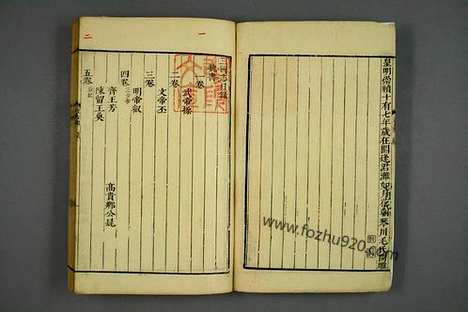 皇明崇禎十有七年歲在閼逢涒灘 琴川毛氏開雕
一卷
武帝操
二卷
文帝丕
三卷
明帝叡
四卷 三少帝
齊王芳 高貴鄉公髦
陳留王奐
五卷
www.fozhu920.com
一
二